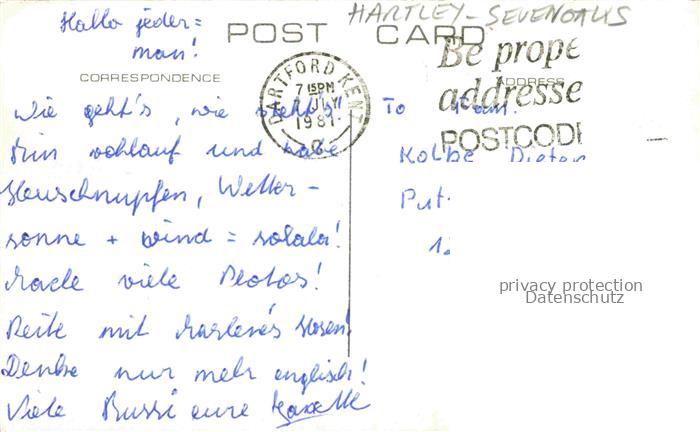 HARTLEY - SEVENOAKS
Hallo jeder=
man!
POST CARD
CORRESPONDENCE
ADDRESS
DARTFORD KENT
7 15PM
JLY
1981
Be prope
addresse
POSTCODE
Wie geht's, wie steht's!
Bin wohlauf und habe
Heuschnupfen, Wetter -
sonne + wind = solala!
Mache viele Photos!
Reite mit Marlene's Hosen!
Denke nur mehr englisch!
Viele Bussi eure
To Fam.
Kolbe Dieter
Put.
1.
privacy protection
Datenschutz